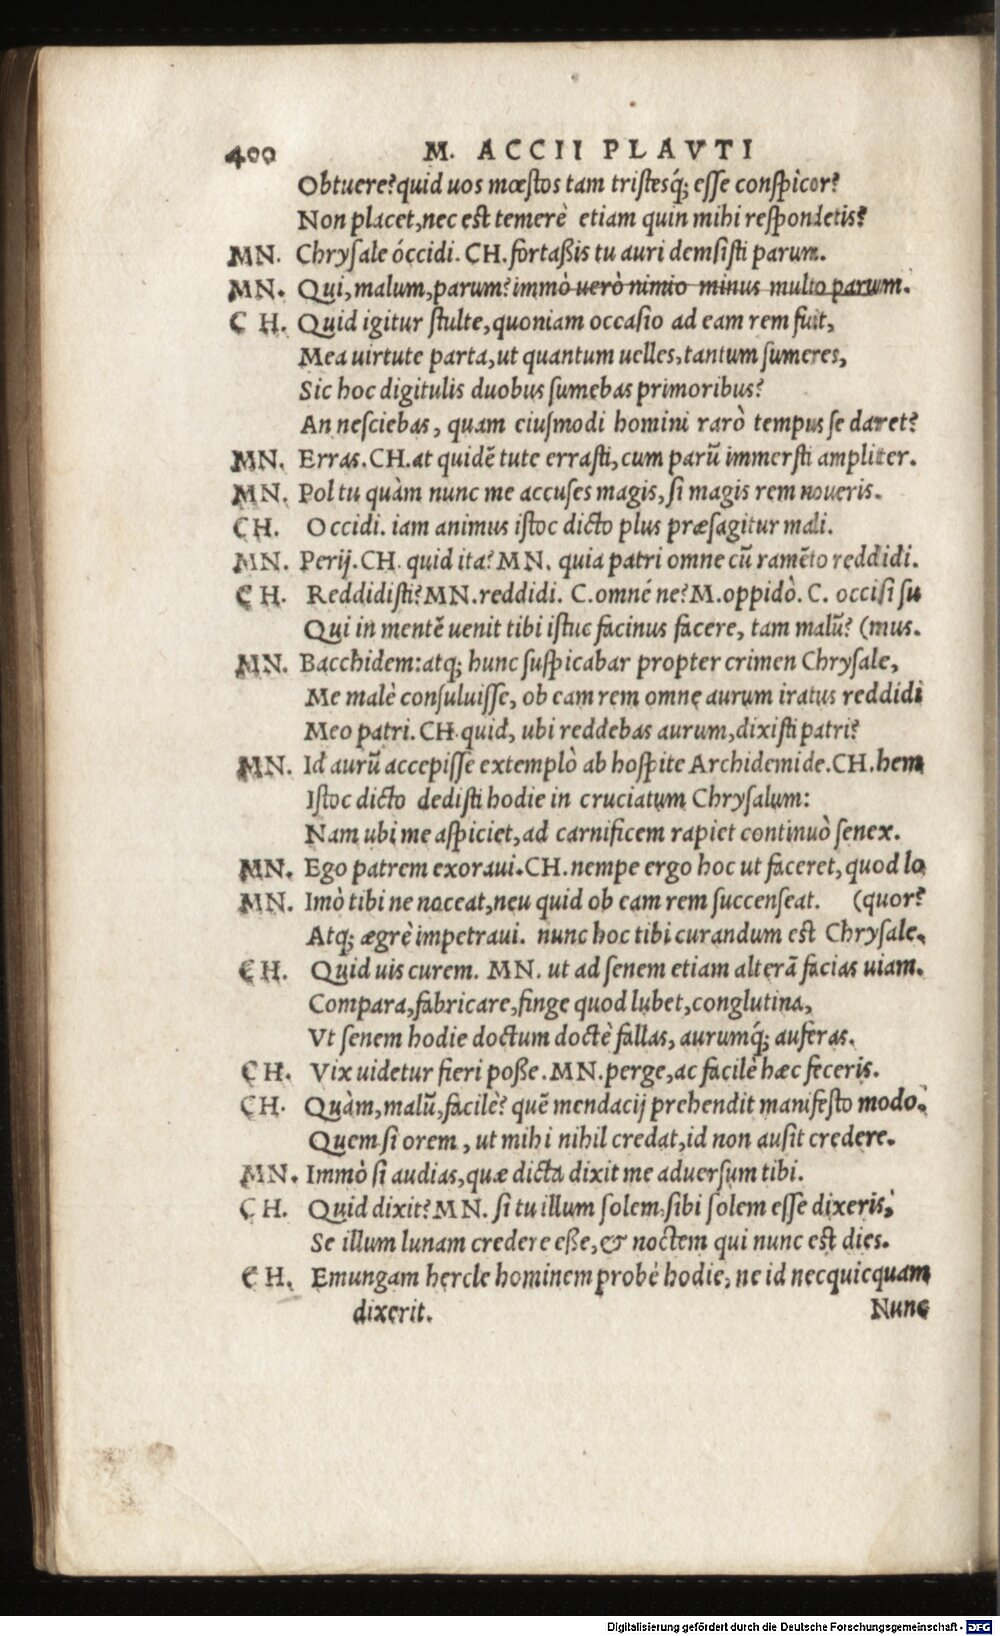 400 M. ACCII PLAVTI
Obtuere? quid uos mœstos tam tristesq́; esse conspicor?
Non placet, nec est temerè etiam quin mihi respondetis?
MN. Chrysale óccidi. CH. fortaßis tu auri demsisti parum.
MN. Qui, malum, parum? immò uerò nimio minus multo parum.
CH. Quid igitur stulte, quoniam occasio ad eam rem fuit,
Mea uirtute parta, ut quantum uelles, tantum sumeres,
Sic hoc digitulis duobus sumebas primoribus?
An nesciebas, quam eiusmodi homini rarò tempus se daret?
MN. Erras. CH. at quidẽ tute errasti, cum parũ immersti ampliter.
MN. Pol tu quàm nunc me accuses magis, si magis rem noueris.
CH. Occidi. iam animus istoc dicto plus præsagitur mali.
MN. Perij. CH. quid ita? MN. quia patri omne cũ ramẽto reddidi.
CH. Reddidisti? MN. reddidi. C. omné ne? M. oppidò. C. occisi su
Qui in mentẽ uenit tibi istuc facinus facere, tam malũ? (mus.
MN. Bacchidem: atq; hunc suspicabar propter crimen Chrysale,
Me malè consuluisse, ob eam rem omne aurum iratus reddidi
Meo patri. CH. quid, ubi reddebas aurum, dixisti patri?
MN. Id aurũ accepisse extemplò ab hospite Archidemide. CH. hem
Istoc dicto dedisti hodie in cruciatum Chrysalum:
Nam ubi me aspiciet, ad carnificem rapiet continuò senex.
MN. Ego patrem exoraui. CH. nempe ergo hoc ut faceret, quod lo
MN. Imò tibi ne noceat, neu quid ob eam rem succenseat. (quor?
Atq; ægrè impetraui. nunc hoc tibi curandum est Chrysale.
CH. Quid uis curem. MN. ut ad senem etiam alterã facias uiam.
Compara, fabricare, finge quod lubet, conglutina,
Vt senem hodie doctum doctè fallas, aurumq́; auferas.
CH. Vix uidetur fieri poße. MN. perge, ac facilè hæc feceris.
CH. Quàm, malũ, facilè? quẽ mendacij prehendit manifesto modò.
Quem si orem, ut mihi nihil credat, id non ausit credere.
MN. Immò si audias, quæ dicta dixit me aduersum tibi.
CH. Quid dixit? MN. si tu illum solem, sibi solem esse dixeris,
Se illum lunam credere eße, & noctem qui nunc est dies.
CH. Emungam hercle hominem probè hodie, ne id necquicquam
dixerit. Nunc
Digitalisierung gefördert durch die Deutsche Forschungsgemeinschaft - DFG